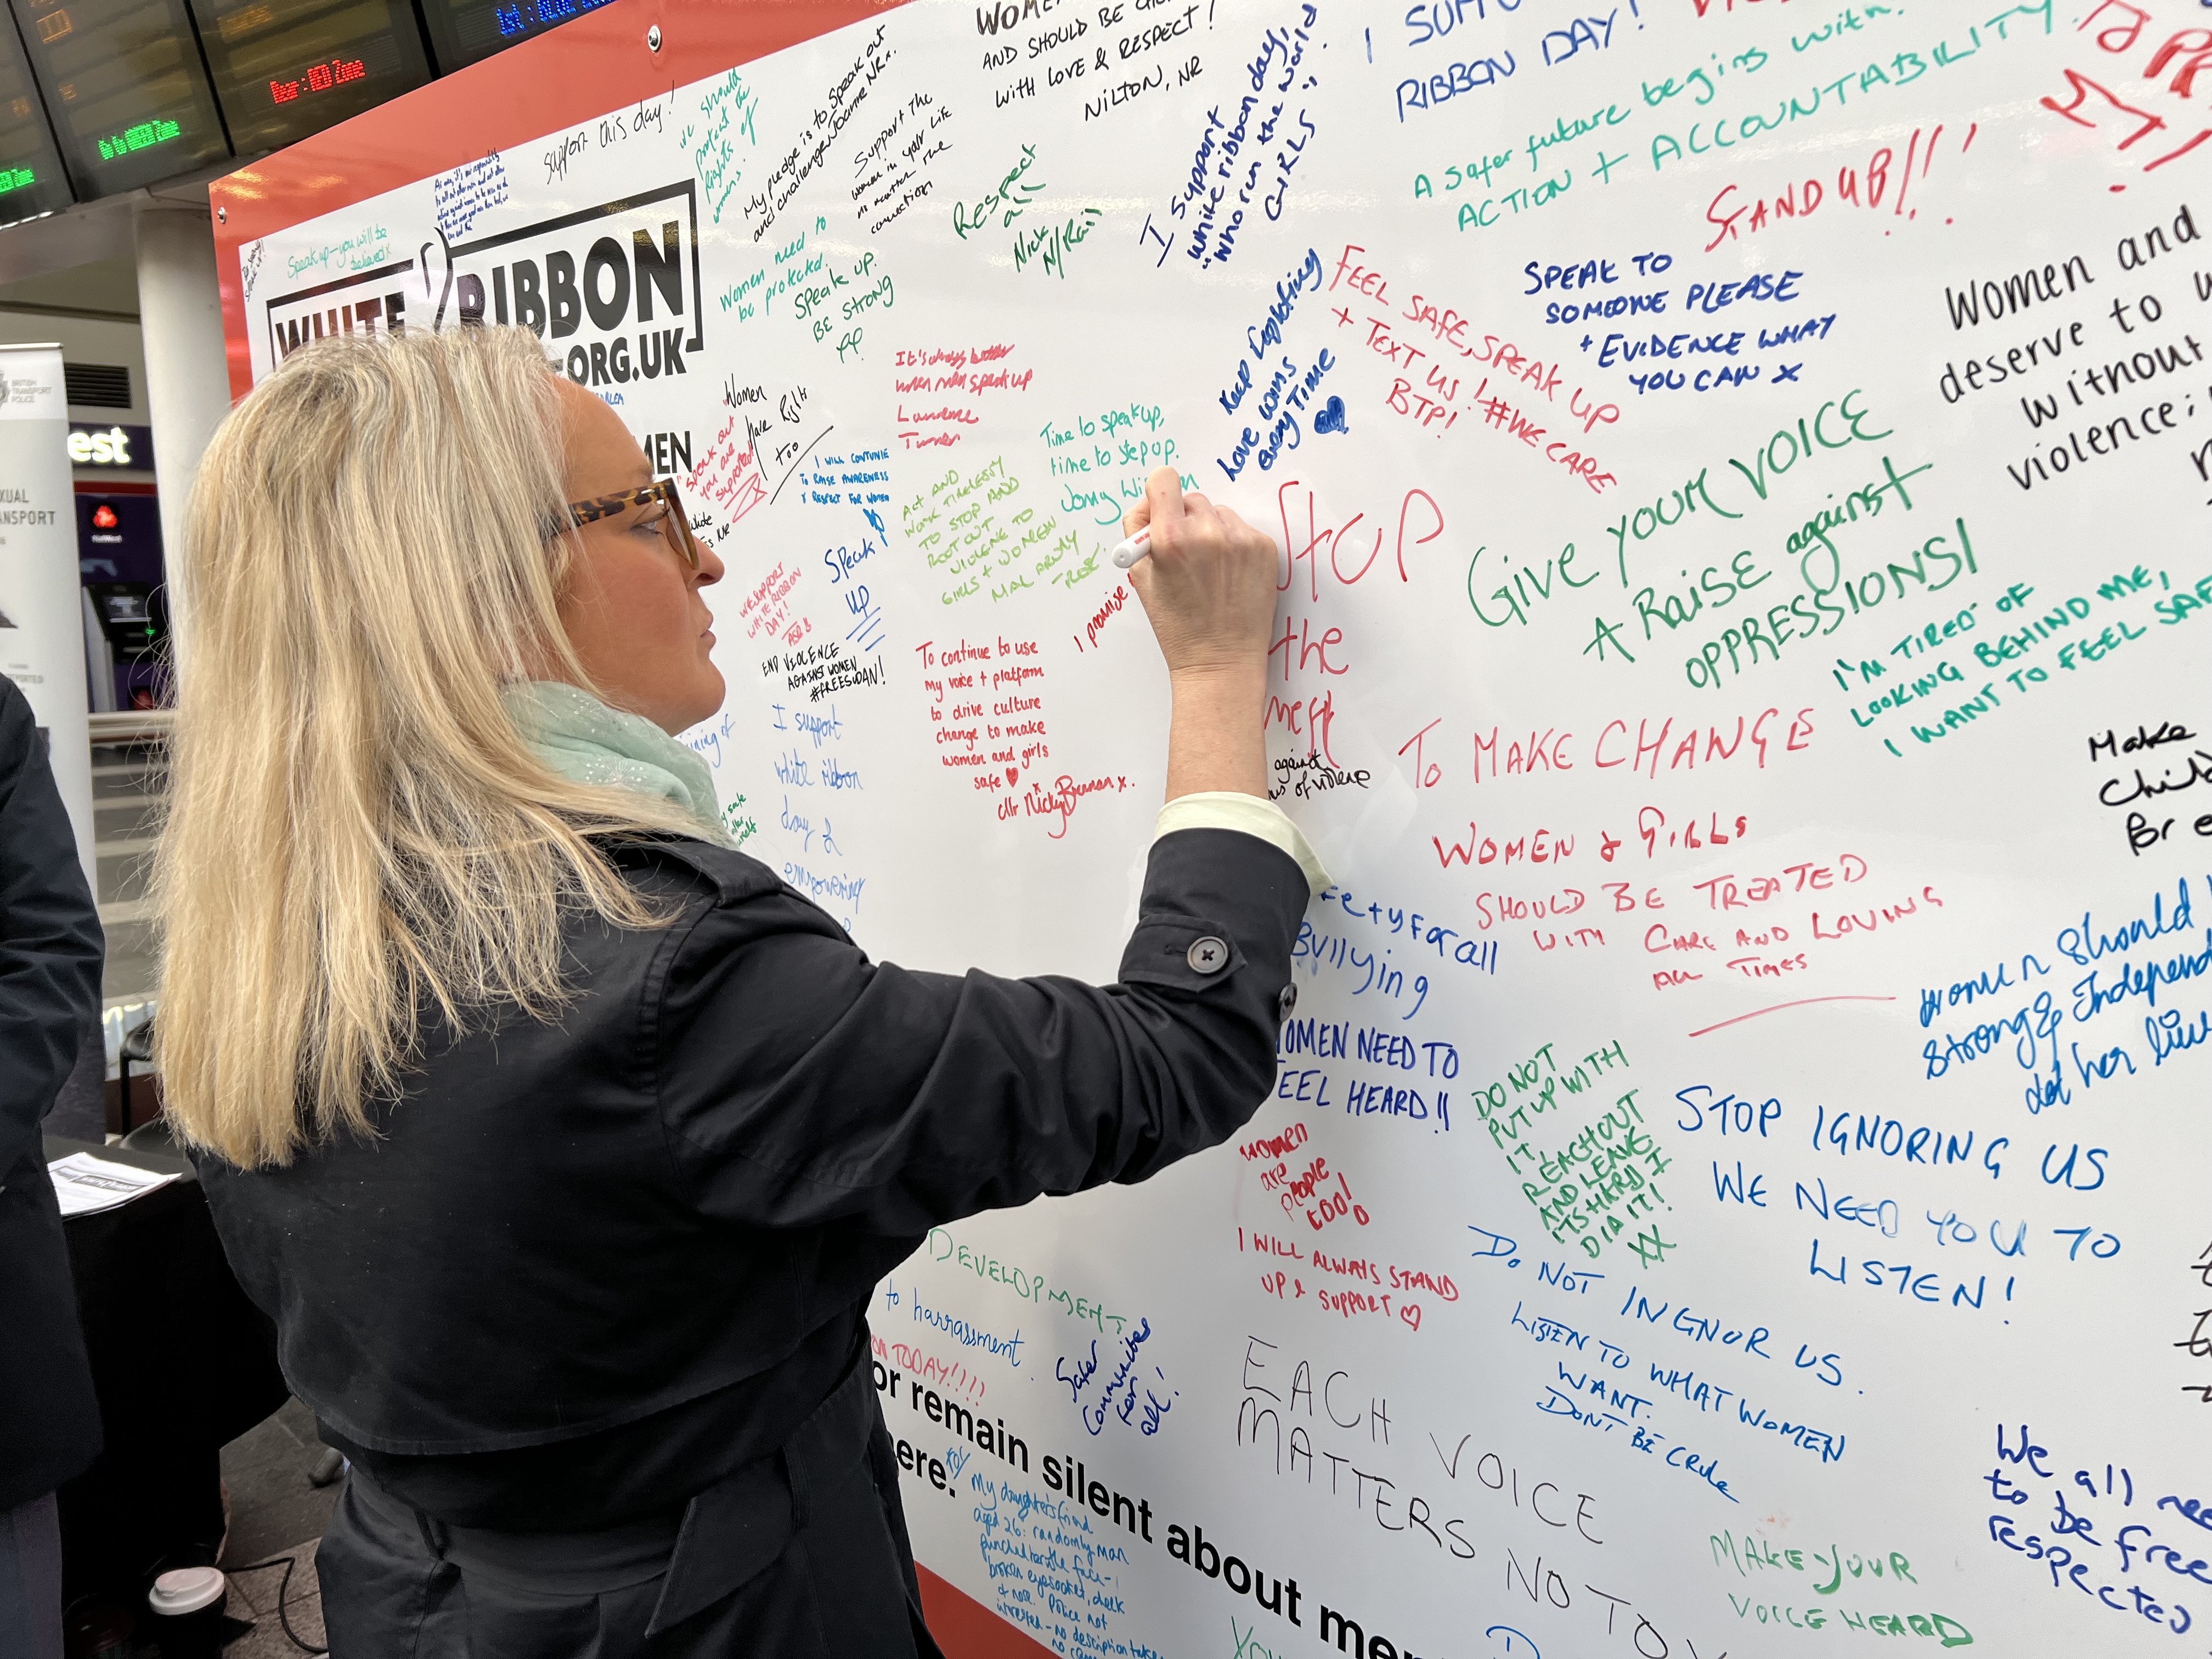 Dear: RED Zone
Go Go GREEN Zone
Zone
BRITISH
TRANSPORT
POLICE
est
NatWest
support this day!
we should
protect the
rights of
women.
My pledge is to speak out
and challenge Joanne NR.
Support the
women in your life
no matter the
connection
AND SHOULD BE
WITH LOVE & RESPECT!
NILTON, NR
Speak up - you will be
believed x
WHITE RIBBON
.ORG.UK
MEN
Women need to
be protected.
Speak up.
BE STRONG
Respect
all
Nick
N/Rail
I support
white ribbon day,
"who run the world
GIRLS"
I SUPPO
RIBBON DAY!
A safer future begins with
ACTION + ACCOUNTABILITY.
STAND UP!!!
SPEAK TO
SOMEONE PLEASE
+ EVIDENCE WHAT
YOU CAN X
FEEL SAFE, SPEAK UP
+ TEXT US! #WECARE
BTP!
Women and
deserve to
without
violence;
It's always better
when men speak up
Lawrence
Turner
Women
Have Right
too
speak out
you are
supported
I WILL CONTINUE
TO RAISE AWARENESS
& RESPECT FOR WOMEN
Time to speak up,
time to step up.
Keep Exploring
Love wins
every TIME
ACT AND
WORK TIRELESSLY
TO STOP AND
ROOT OUT
VIOLENCE TO
GIRLS + WOMEN
Speak
UP
WE SUPPORT
WHITE RIBBON
DAY!
END VIOLENCE
AGAINST WOMEN
#FREESUDAN!
I promise
To continue to use
my voice + platform
to drive culture
change to make
women and girls
safe
Cllr Nicky Brennan x.
I support
white ribbon
day &
empowering
STOP
the
against
of violence
GIVE YOUR VOICE
A RAISE against
OPPRESSIONS!
I'M TIRED OF
LOOKING BEHIND ME,
I WANT TO FEEL SAFE
TO MAKE CHANGE
WOMEN & GIRLS
SHOULD BE TREATED
WITH CARE AND LOVING
ALL TIMES
Make
fety For all
Bullying
OMEN NEED TO
EEL HEARD!!
women
are
people
too!
I WILL ALWAYS STAND
UP & SUPPORT
DO NOT
PUT UP WITH
IT,
REACH OUT
AND LEAVE
ITS HARD I
DID IT!
XX
women should
strong & Independ
STOP IGNORING US
WE NEED YOU TO
LISTEN!
DO NOT INGNOR US.
LISTEN TO WHAT WOMEN
WANT.
DONT BE CRUDE
DEVELOPMENT
to harrassment
ON TODAY!!!!
Safer
Communities
For
all!
or remain silent about men
ere.
My daughters friend
aged 26: randomly man
punched her the face -
broken eyesocket, cheek
& nose. Police not
interested - no description taken
EACH VOICE
MATTERS NO TO
MAKE YOUR
VOICE HEARD
We all nee
to be free
respected